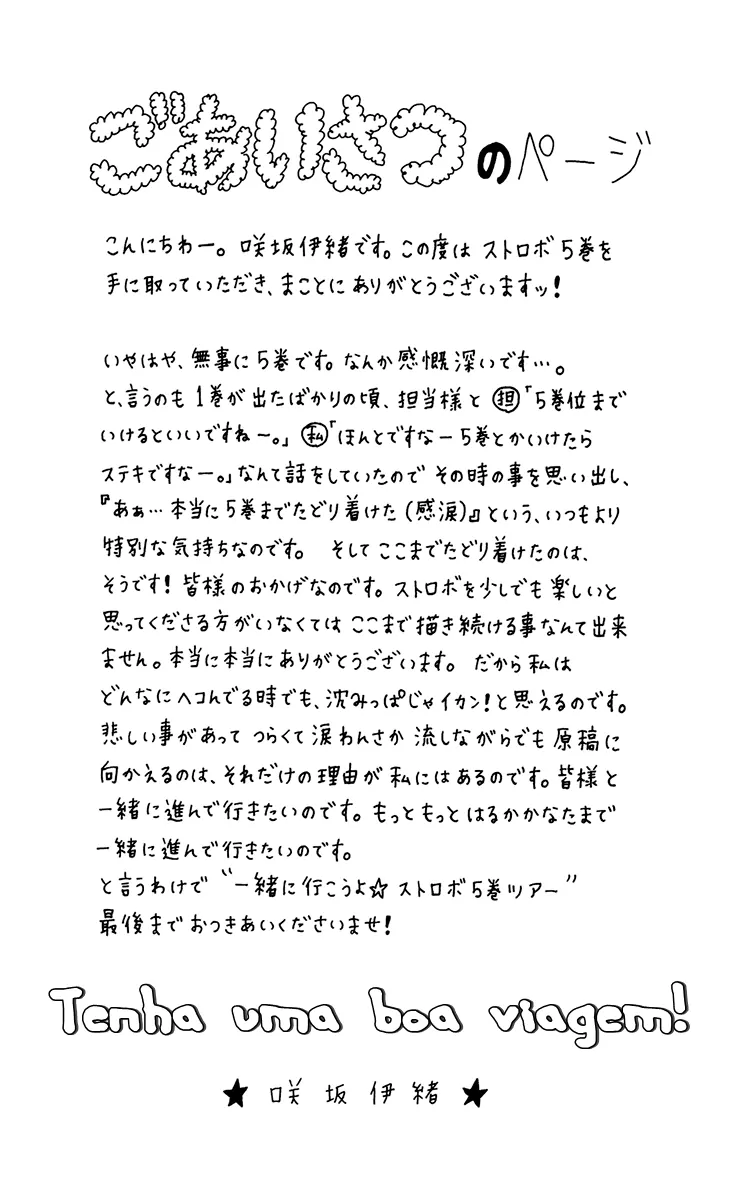 ごあいさつのページ
こんにちわー。咲坂伊緒です。この度は ストロボ5巻を
手に取っていただき、まことにありがとうございますッ!
いやはや、無事に5巻です。なんか感慨深いです…。
と、言うのも 1巻が出たばかりの頃、担当様と 担「5巻位まで
いけるといいですね〜。」 私「ほんとですなー5巻とかいけたら
ステキですなー。」なんて話をしていたので その時の事を思い出し、
『あぁ…本当に5巻までたどり着けた(感涙)』という、いつもより
特別な気持ちなのです。 そして ここまでたどり着けたのは、
そうです! 皆様のおかげなのです。ストロボを少しでも楽しいと
思ってくださる方がいなくては ここまで描き続ける事なんて出来
ません。本当に本当にありがとうございます。 だから私は
どんなにヘコんでる時でも、沈みっぱじゃイカン!と思えるのです。
悲しい事があって つらくて涙わんさか 流しながらでも原稿に
向かえるのは、それだけの理由が私にはあるのです。皆様と
一緒に進んで行きたいのです。もっともっと はるかかなたまで
一緒に進んで行きたいのです。
と言うわけで “一緒に行こうよ☆ ストロボ5巻ツアー”
最後までおつきあいくださいませ!
Tenha uma boa viagem!
★ 咲坂伊緒 ★